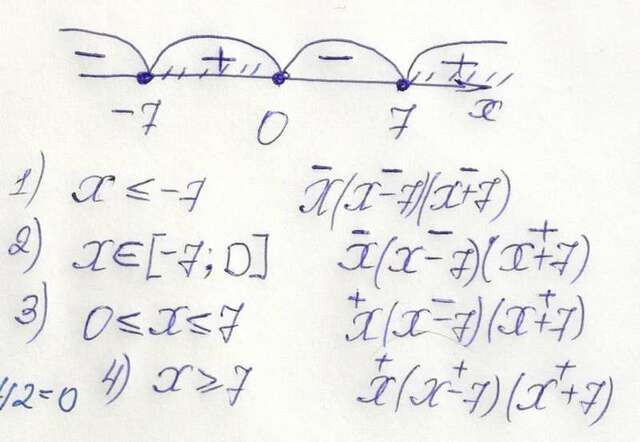 − + − +
−7 0 7 x
1) x ≤ −7 x̄(x−̄7)(x+̄7)
2) x∈[−7; 0] x̄(x−̄7)(x+⁺7)
3) 0 ≤ x ≤ 7 ⁺x(x−̄7)(x+⁺7)
42=0 4) x ≥ 7 ⁺x(x−⁺7)(x+⁺7)